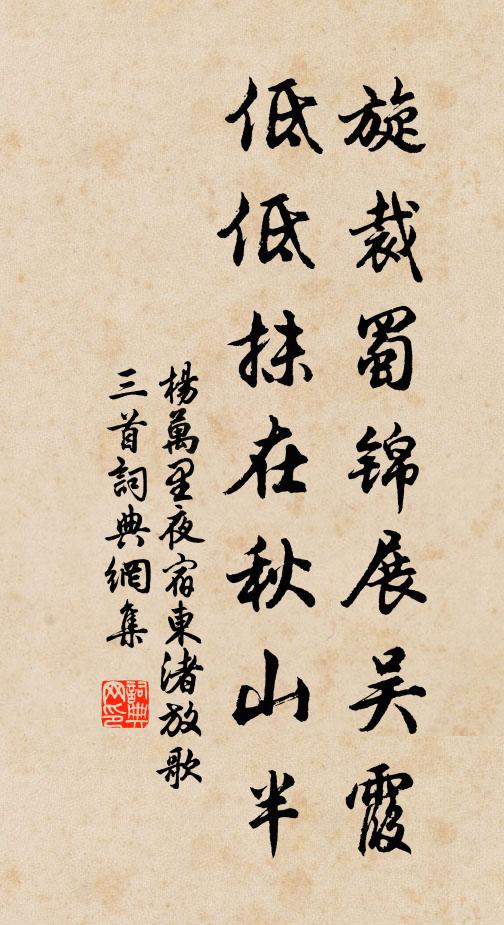 旋裁蜀錦展吴霞
低低抹在秋山半
楊萬里夜宿東渚放歌
三首詞典網集
詞典网印